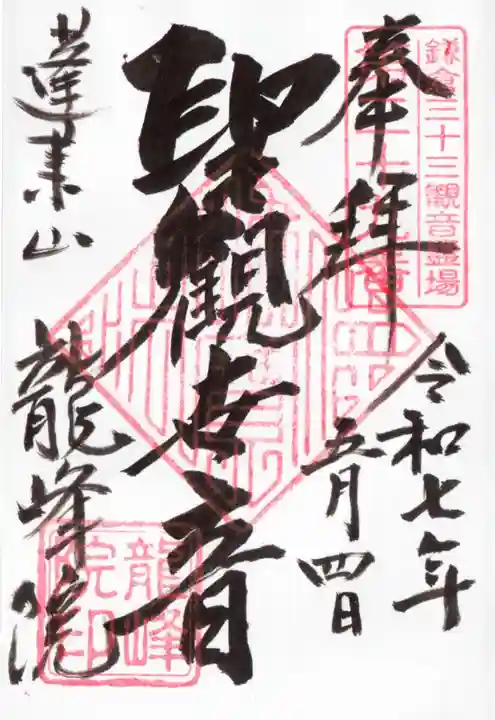 鎌倉三十三觀音霊場
奉拝
令和七年
五月四日
聖觀世音
蓬莱山
龍峰院
龍峰
院印